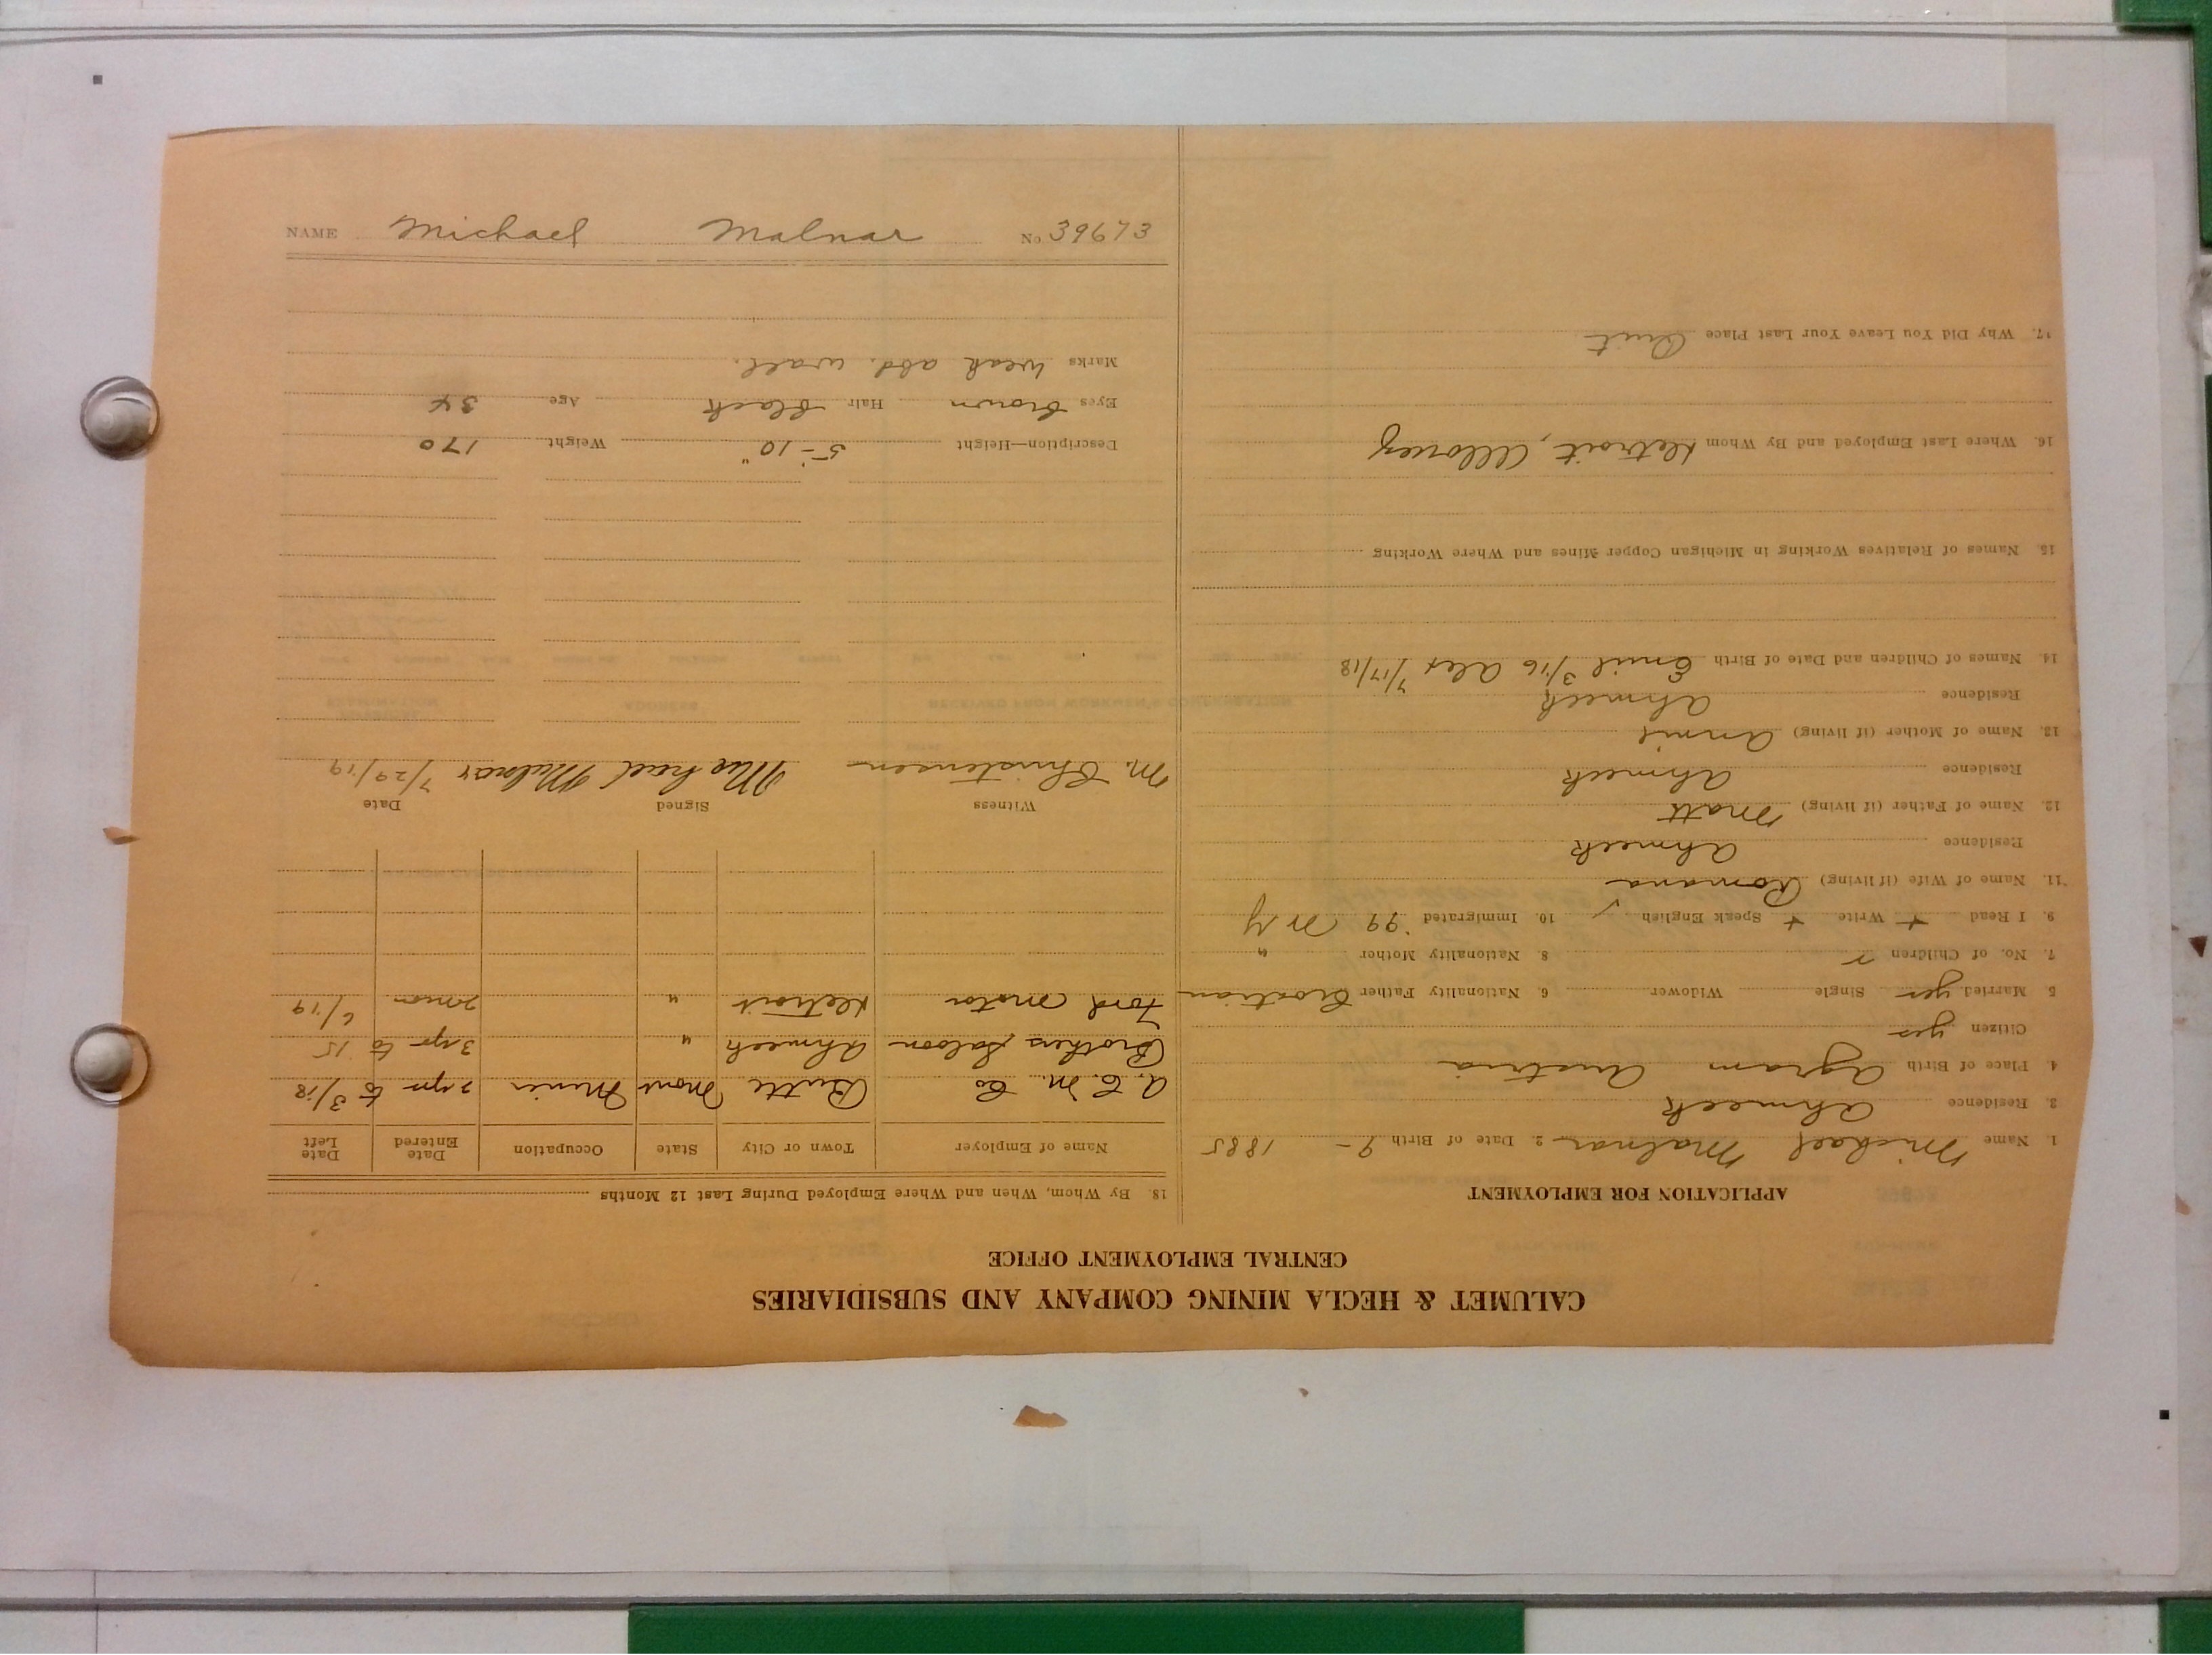 NAME Michael Malnar No. 39673
CALUMET & HECLA MINING COMPANY AND SUBSIDIARIES
CENTRAL EMPLOYMENT OFFICE
APPLICATION FOR EMPLOYMENT
1. Name Michael Malnar 2. Date of Birth 9 - 1885
3. Residence Ahmeek
4. Place of Birth Agram Austria
Citizen yes
5. Married yes Single Widower 6. Nationality Father Croatian
7. No. of Children 2 8. Nationality Mother "
9. I Read + Write + Speak English ✓ 10. Immigrated '99 N Y
11. Name of Wife (if living) Romana
Residence Ahmeek
12. Name of Father (if living) Matt
Residence Ahmeek
13. Name of Mother (if living) Annie
Residence Ahmeek
14. Names of Children and Date of Birth Emil 3/16 Alex 7/17/18
15. Names of Relatives Working in Michigan Copper Mines and Where Working
16. Where Last Employed and By Whom Detroit, Allouez
17. Why Did You Leave Your Last Place Quit
18. By Whom, When and Where Employed During Last 12 Months
Name of Employer Town or City State Occupation Date Entered Date Left
A. C. M. Co Butte Mont Miner 2 yrs to 3/18
Brothers Saloon Ahmeek " 3 yr to 15
Ford Motor Detroit " 2 mos 6/19
Witness Signed Date
M. Christensen Michael Malnar 7/29/19
Description—Height 5'-10" Weight 170
Eyes brown Hair black Age 34
Marks weak abd. wall.